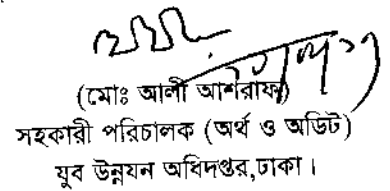 (মোঃ আলী আশরাফ)
সহকারী পরিচালক (অর্থ ও অডিট)
যুব উন্নযন অধিদপ্তর,ঢাকা।